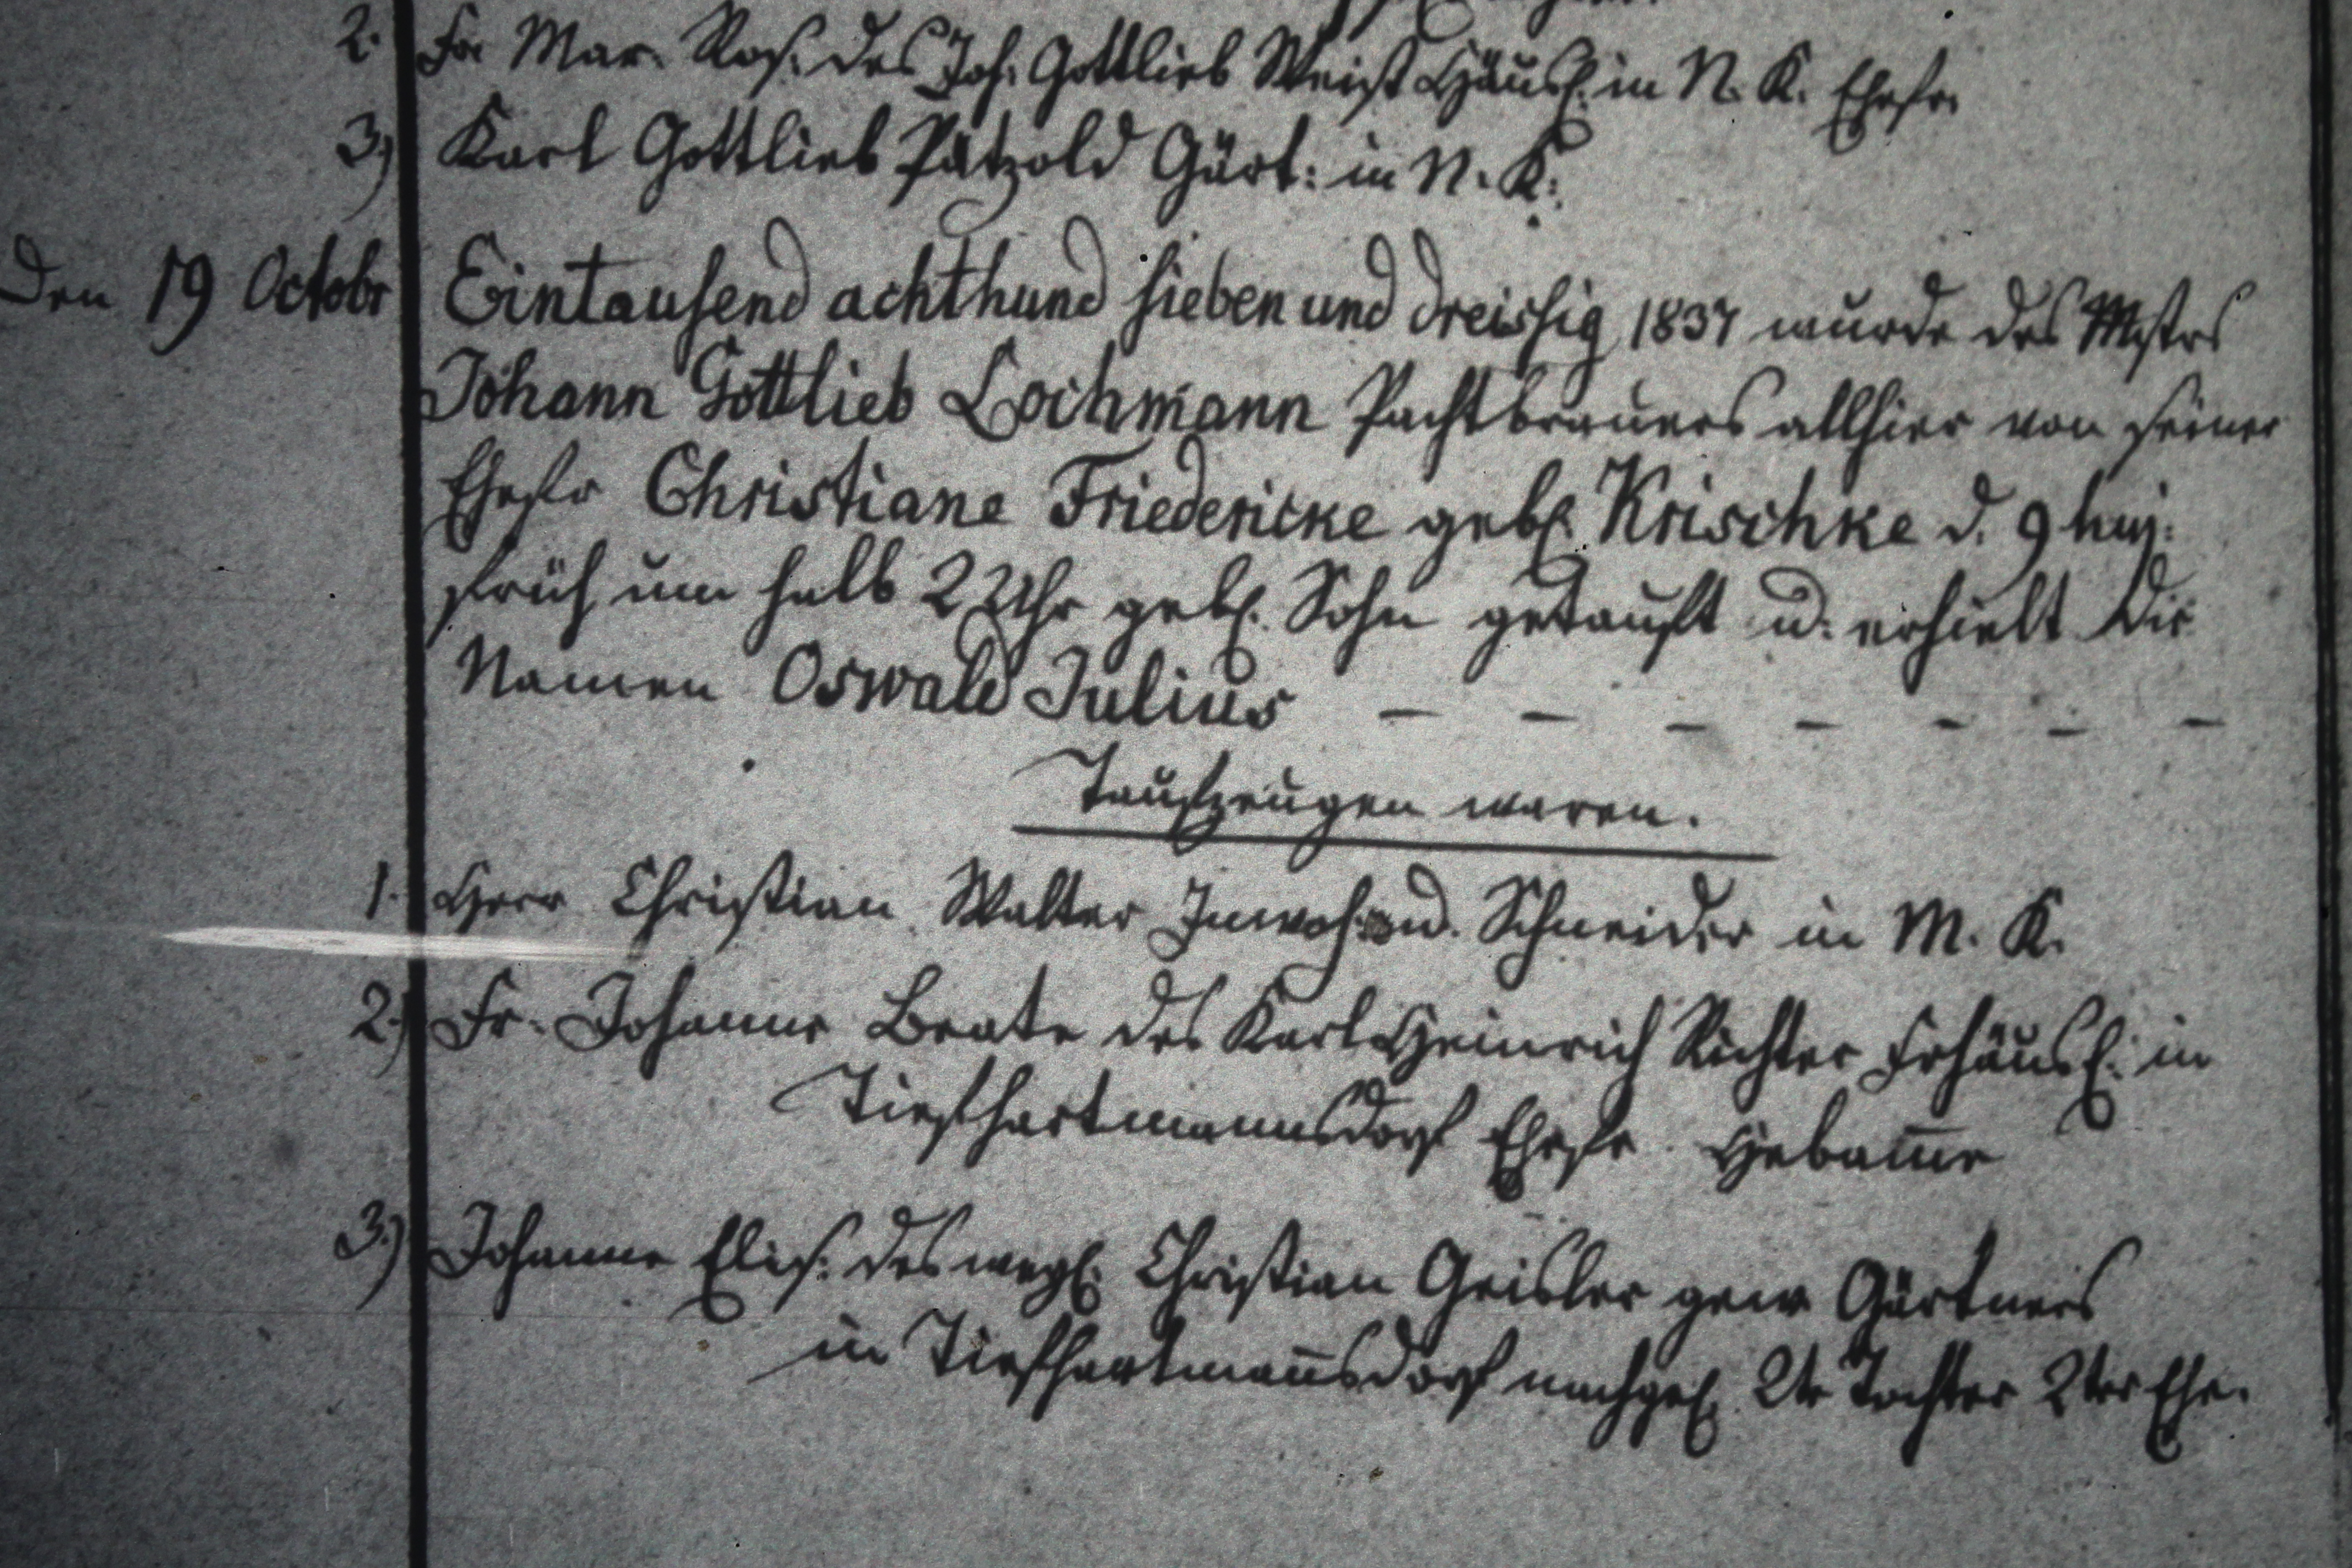 2. Fr Mar. Ros: des Joh: Gottlieb Weist Häusl: in N. K. Ehefr.
3) Karl Gottlieb Pätzold Gärt: in N. K:
Den 19 Octobr Eintausend achthund sieben und dreissig 1837 wurde des Mstrs
Johann Gottlieb Lochmann Pachtbrauers allhier von seiner
Ehefr Christiane Friedericke gebl. Krischke d. 9 huj:
früh um halb 2 Uhr gebl. Sohn getauft u. erhielt die
Namen Oswald Julius — — — — — — —
Taufzeugen waren.
1. Herr Christian Walter Inwoh: u. Schneider in M. K.
2.) Fr. Johanne Beate des Karl Heinrich Richter Frhäusl: in
Tiefhartmannsdorf Ehefr. Hebam̅e
3.) Johanne Elis: des weyl. Christian Geisler gew Gärtners
in Tiefhartman̅sdorf nachgel. 2te Tochter 2ter Ehe.